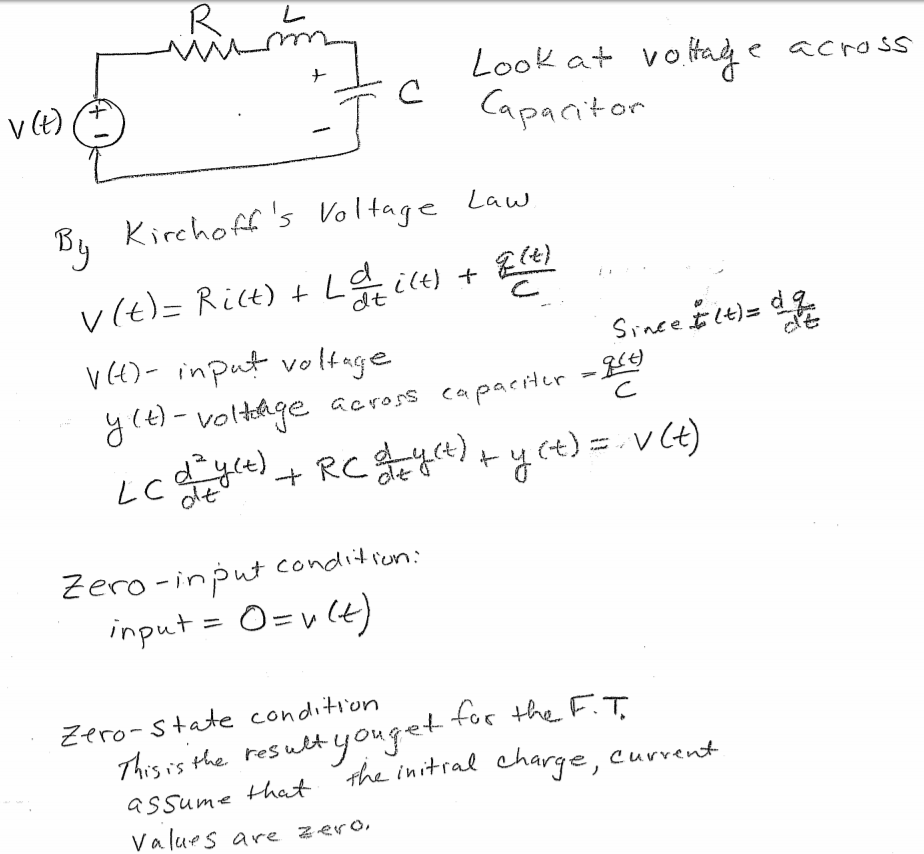 R L
+
C
v(t) + -
-
Look at voltage across
Capacitor
By Kirchoff's Voltage Law
v(t) = Ri(t) + L d/dt i(t) + q(t)/C
Since i(t) = dq/dt
v(t) - input voltage
y(t) - voltage across capacitor = q(t)/C
LC d²y(t)/dt + RC d/dt y(t) + y(t) = v(t)
Zero-input condition:
input = 0 = v(t)
Zero-state condition
This is the result you get for the F.T.
assume that the initial charge, current
values are zero.